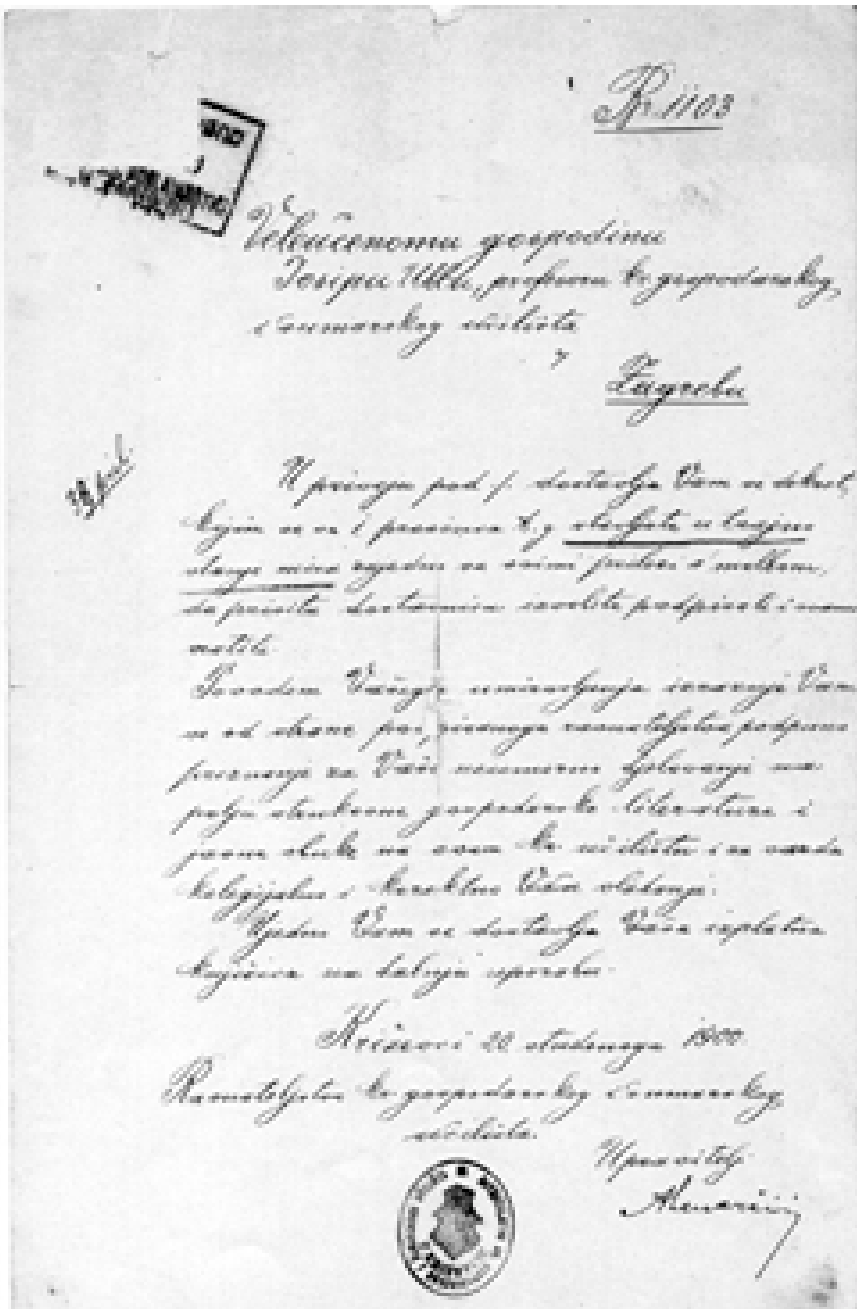 Br. 1103
Veleučenomu gospodinu
Josipu Ullu, profesoru kr. gospodarskog
i šumarskog učilišta
Zagrebu
U privoju pod /. dostavlja Vam se dekret,
kojim se sa 1 prosinca t. g. stavljate u trajno
stanje mira ujedno sa svimi prilozi s molbom,
da priviti dostavnicu izvolite podpisati i nam
vratiti.
Povodom Vašega umirovljenja izrazuje Vam
se od strane potpisanoga ravnateljstva podpuno
priznanje za Vaše neumorno djelovanje na
polju strukovne gospodarske literature i
javne obuke na ovom kr. učilištu i za vazda
kolegijalno i korektno Vaše vladanje.
Ujedno Vam se dostavlja Vaša isplatna
knjižica na daljnju uporabu.
Križevci 20. studenoga 1900.
Ravnateljstvo kr. gospodarskog i šumarskog
učilišta.
Upravitelj